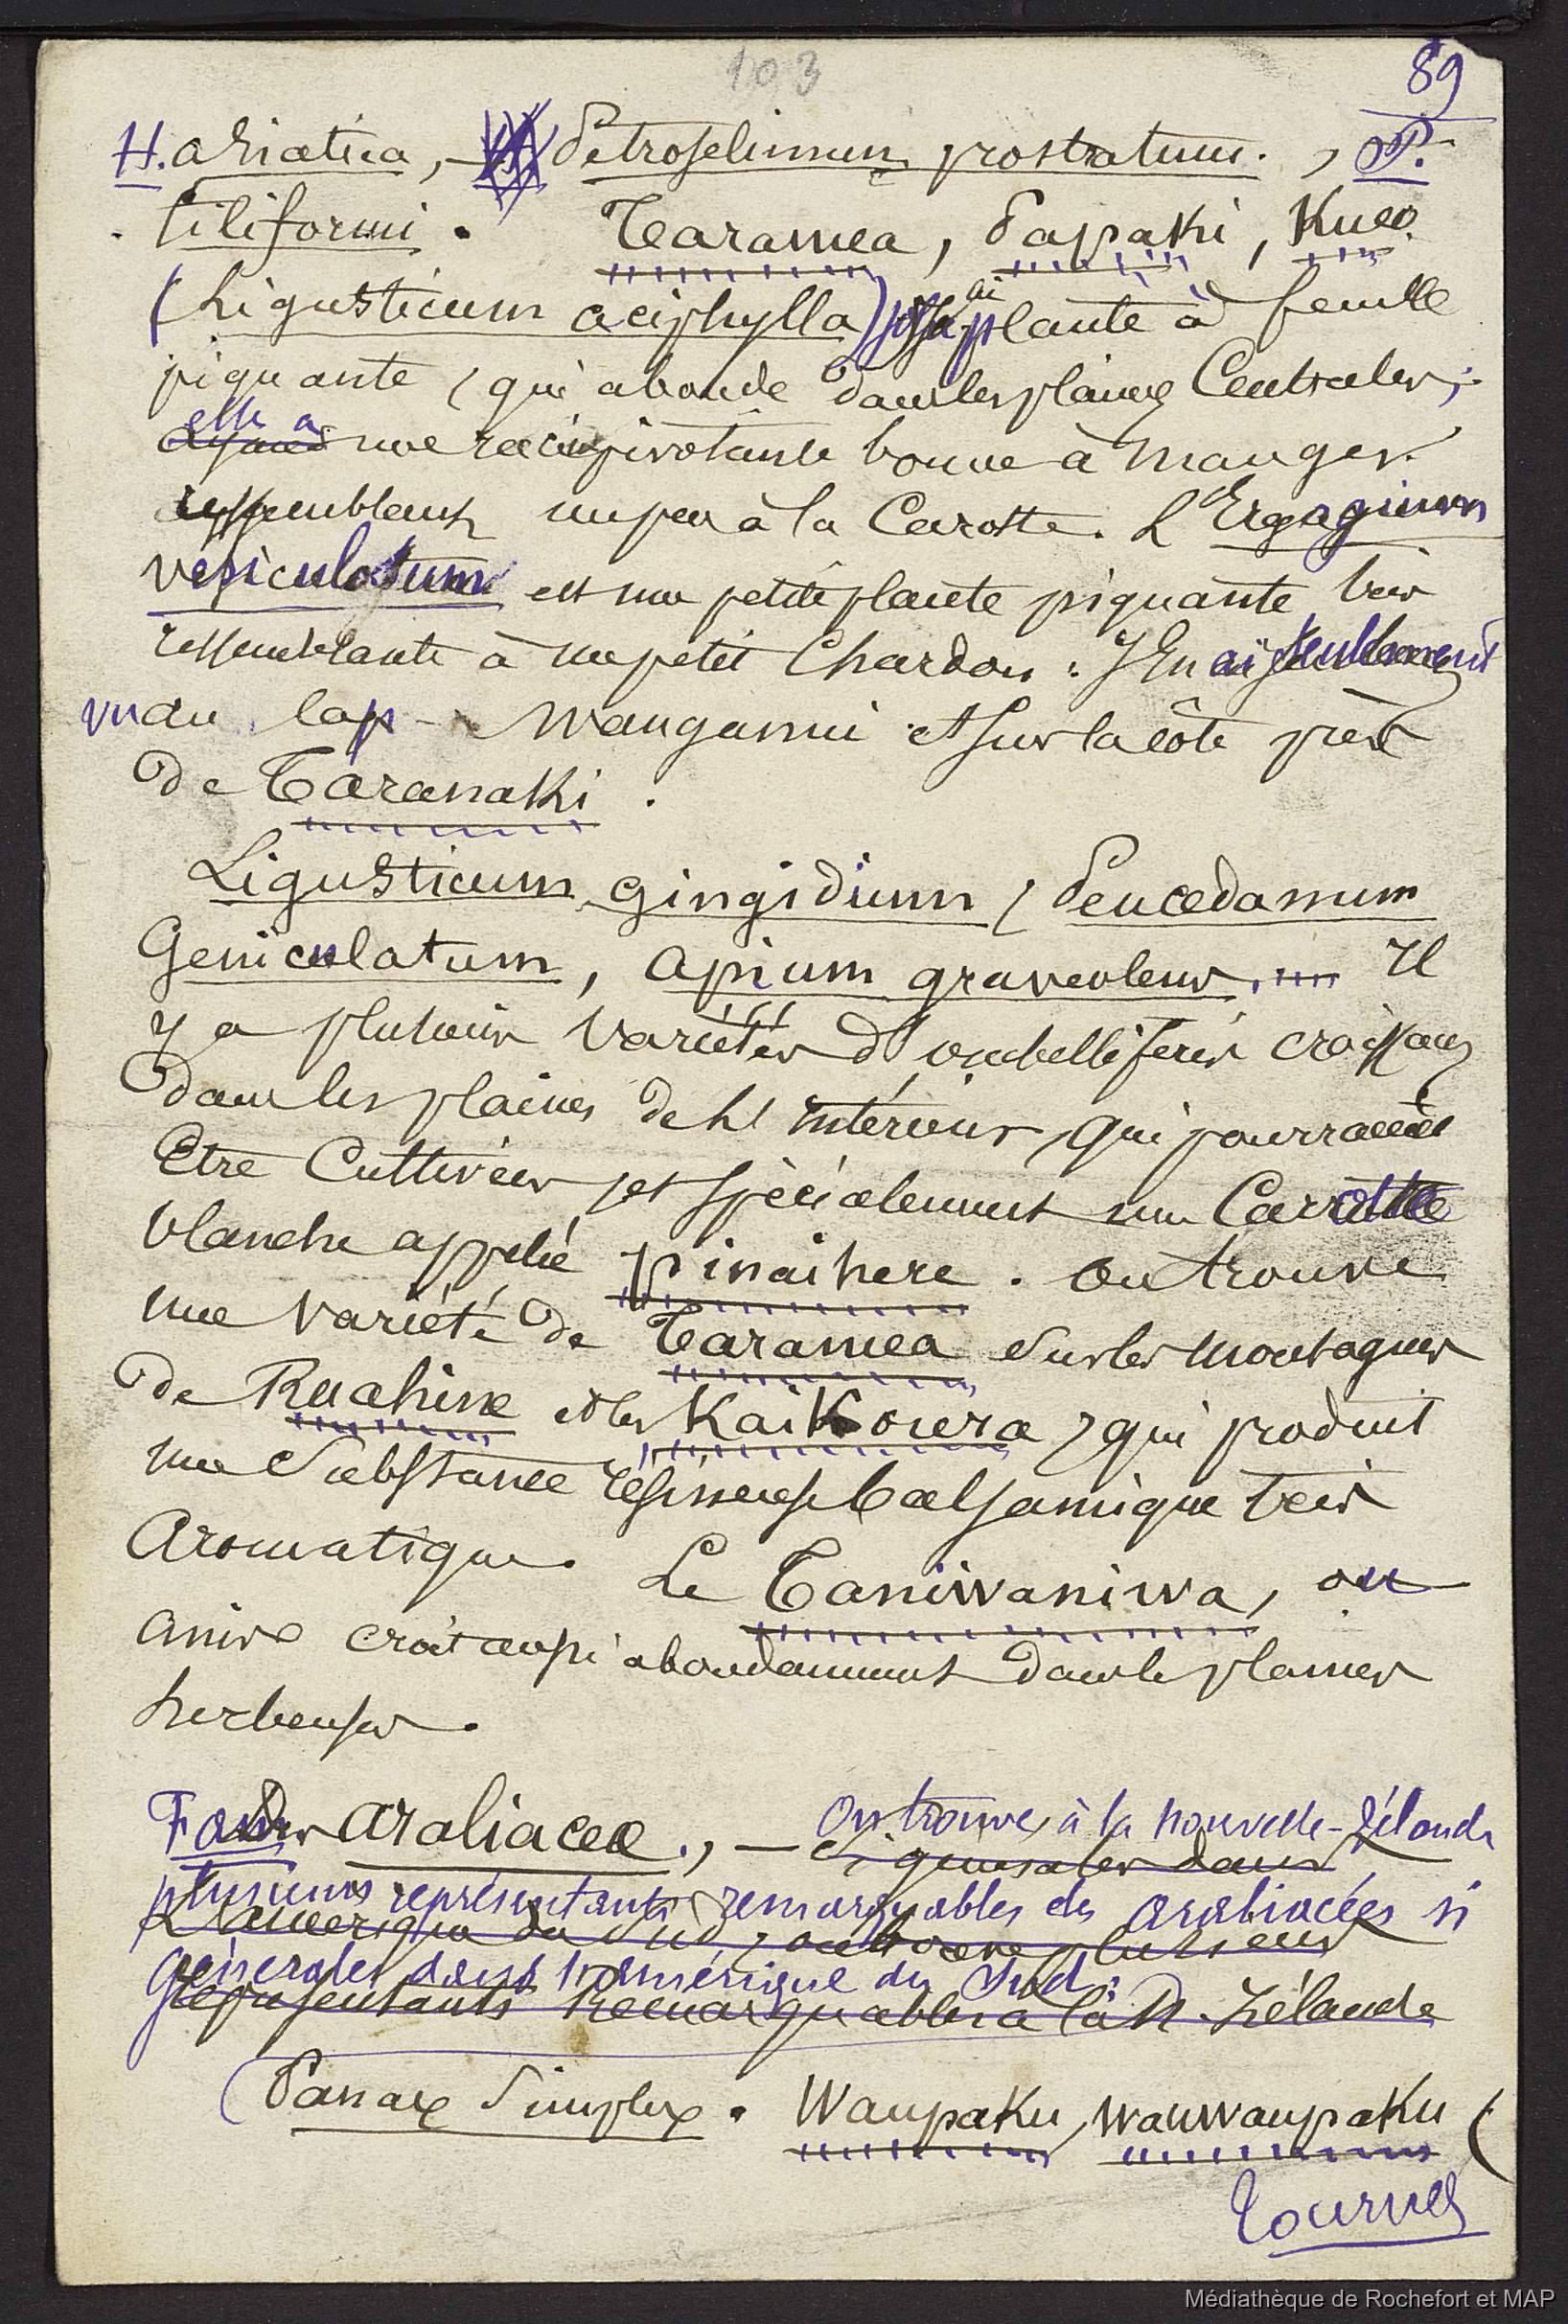 103
89
H. asiatica, — Petroselinum prostratum. , P.
filiformi. Taramea, Papaki, Kueo
(Ligusticum aciphylla) plante à feuille
piquante, qui abonde dans les plaines Centrales;
elle a une racine pivotante bonne à manger
ressemblant un peu à la Carotte. L'Ergagium
vesiculatum est une petite plante piquante très
ressemblante à un petit Chardon. J'En ai seulement
vu au lap - Wanganui et sur la côte près
de Taranaki.
Ligusticum gingidium, Peucedanum
Geniculatum, apium graveolens. Il
y a plusieurs variétés d'ombellifères croissans
dans les plaines de l'intérieur, qui pourraient
Etre Cultivées, et spécialement une Carrotte
blanche appelée pinaihere. On trouve
une variété de Taramea sur les montagnes
de Ruahine et les KaiKoura, qui produit
une substance résineuse balsamique très
Aromatique. Le Taniwaniwa, ou
anise croit aussi abondamment dans le plaines
herbeuses.
Fam araliacee., — On trouve à la nouvelle-Zélande
Si generales dans
plusieurs représentants remarquables des araliacées si
L'amerique du Sud, on trouve plusieurs
générales dans l'amérique du Sud.
représentants Remarquables à la N. Zélande
(Panax Simplex. Waupaku, Wauwaupaku (
Tournez
Médiathèque de Rochefort et MAP